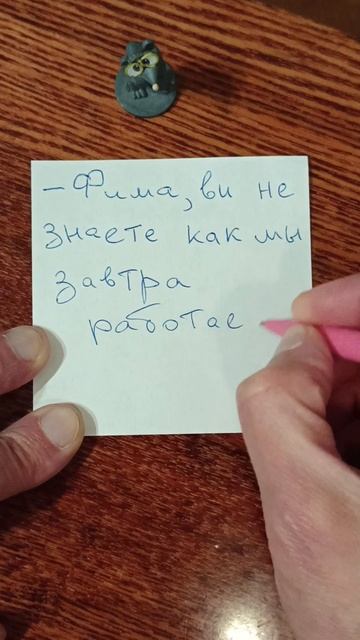 - Фима, ви не
знаете как мы
завтра
работае